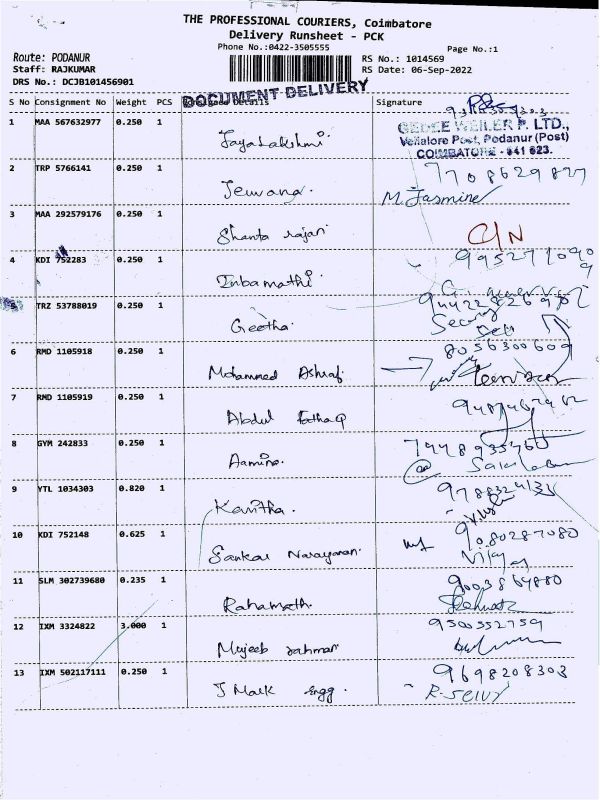 THE PROFESSIONAL COURIERS, Coimbatore
Delivery Runsheet - PCK
Phone No.:0422-3505555
Page No.:1
Route: PODANUR
Staff: RAJKUMAR
DRS No.: DCJB101456901
RS No.: 1014569
RS Date: 06-Sep-2022
DOCUMENT DELIVERY
S No Consignment No Weight PCS Consignee Details Signature
1 MAA 567632977 0.250 1 JayaLakshmi
GEDEE WEILER P. LTD.,
Vellalore Post, Podanur (Post)
COIMBATORE - 641 023.
2 TRP 5766141 0.250 1 Jewana. 7708629827
M. Jasmine
3 MAA 292579176 0.250 1 Shanta rajan C/N
4 KDI 752283 0.250 1 Inbamathi
5 TRZ 53788019 0.250 1 Geetha.
Security
6 RMD 1105918 0.250 1 Mohammed Ashraf 8056300609
7 RMD 1105919 0.250 1 Abdul Fathaq
8 GYM 242833 0.250 1 Aamina.
9 YTL 1034303 0.820 1 Kavitha.
10 KDI 752148 0.625 1 Sankar Narayanan. 9080287080
Vijay
11 SLM 302739680 0.235 1 Rahamath. 9003864880
12 IXM 3324822 3.000 1 Mujeeb rahman 9500552759
13 IXM 502117111 0.250 1 J Mark Engg. 9698208303
R. Selvy